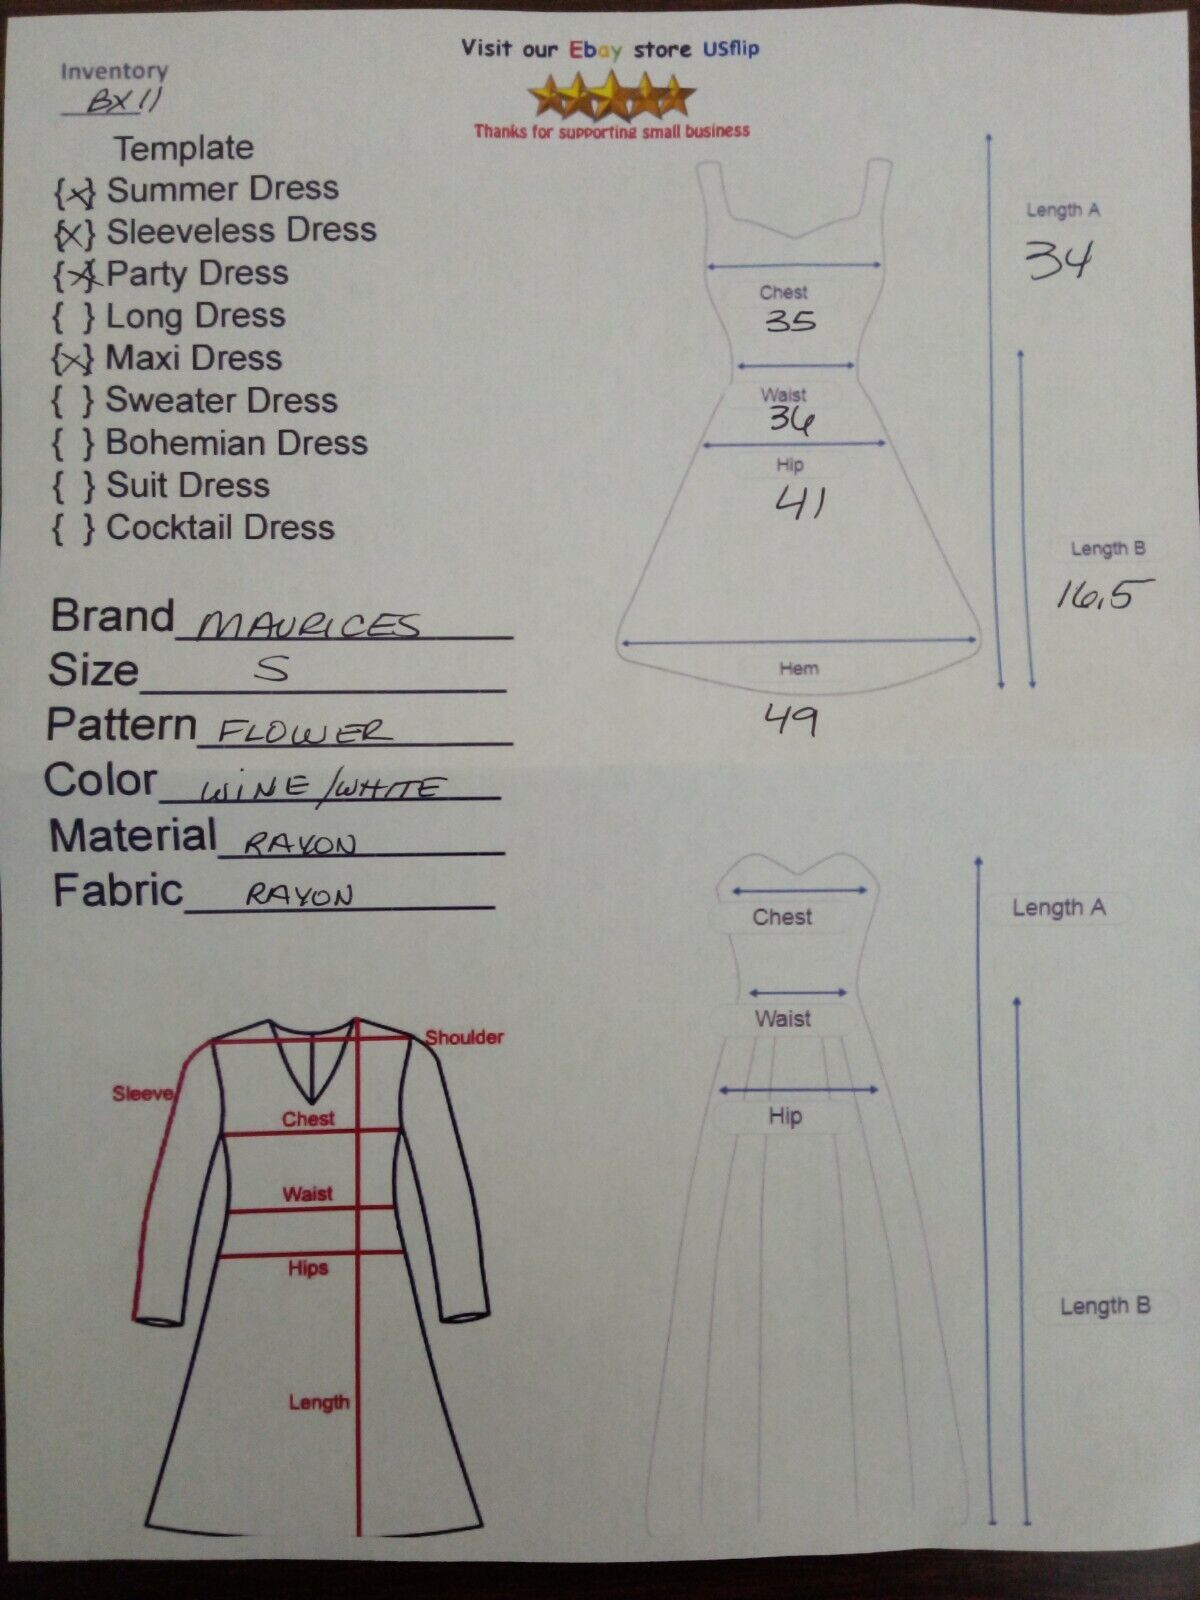 Visit our Ebay store USflip
Thanks for supporting small business
Inventory
BX11
Template
{x} Summer Dress
{x} Sleeveless Dress
{x} Party Dress
{ } Long Dress
{x} Maxi Dress
{ } Sweater Dress
{ } Bohemian Dress
{ } Suit Dress
{ } Cocktail Dress
Brand MAURICES
Size S
Pattern FLOWER
Color WINE/WHITE
Material RAYON
Fabric RAYON
Length A
34
Chest
35
Waist
36
Hip
41
Length B
16.5
Hem
49
Shoulder
Sleeve
Chest
Waist
Hips
Length
Chest
Length A
Waist
Hip
Length B